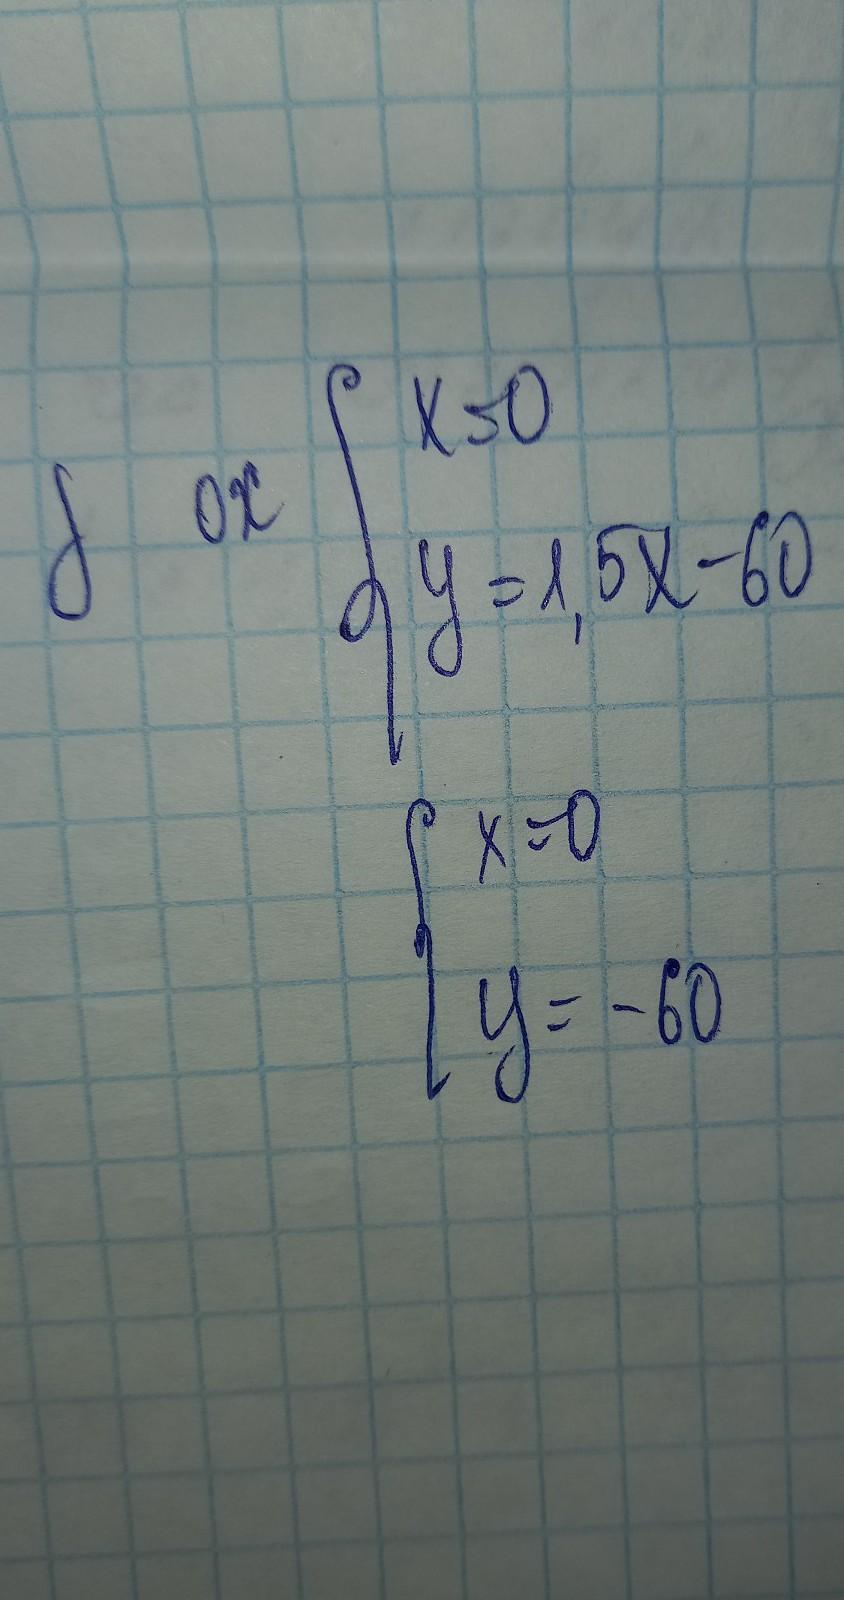 ох { x=0
y=1,5x-60
{ x=0
y=-60